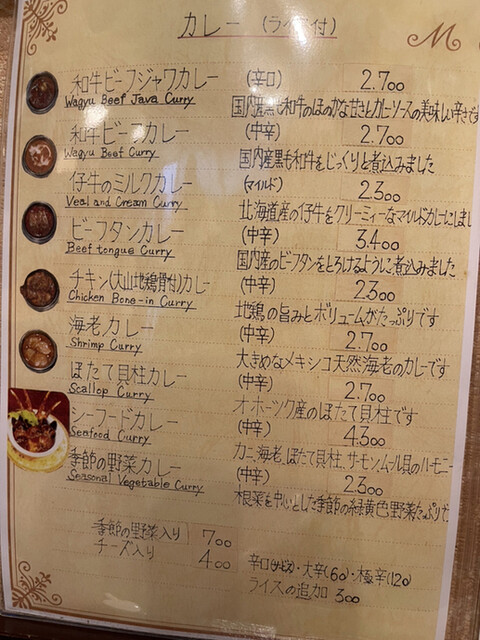 カレー (ライス付)
M
和牛ビーフジャワカレー (辛口) 2.700
Wagyu Beef Java Curry
国内産黒毛和牛のほのかな甘さとカレーソースの美味しい辛さです
和牛ビーフカレー (中辛) 2.700
Wagyu Beef Curry
国内産黒毛和牛をじっくりと煮込みました
仔牛のミルクカレー (マイルド) 2.300
Veal and Cream Curry
北海道産の仔牛をクリーミィーなマイルドカレーにしまし
ビーフタンカレー (中辛) 3.400
Beef tongue Curry
国内産のビーフタンをとろけるように煮込みました
チキン(大山地鶏骨付)カレー (中辛) 2.300
Chicken Bone-in Curry
地鶏の旨みとボリュームがたっぷりです
海老カレー (中辛) 2.700
Shrimp Curry
大きめなメキシコ天然海老のカレーです
ほたて貝柱カレー (中辛) 2.700
Scallop Curry
オホーツク産のほたて貝柱です
シーフードカレー (中辛) 4.300
Seafood Curry
カニ、海老、ほたて貝柱、サーモン、ムール貝のハーモニー
季節の野菜カレー (中辛) 2.300
Seasonal Vegetable Curry
根菜を中心とした季節の緑黄色野菜たっぷりで
季節の野菜入り 700
チーズ入り 400
辛口(サービス)・大辛(60)・極辛(120)
ライスの追加 300